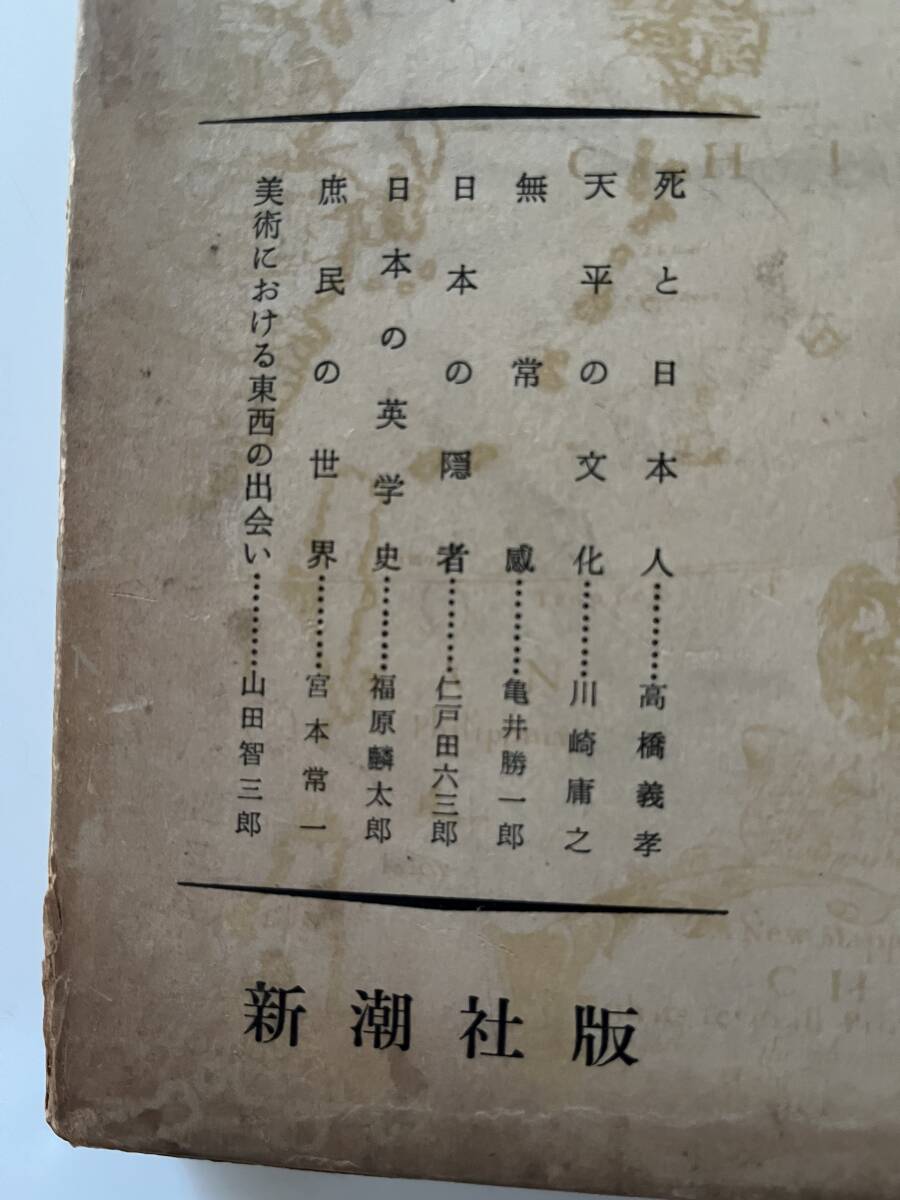 死と日本人…………高橋義孝
天平の文化…………川崎庸之
無常感…………亀井勝一郎
日本の隠者…………仁戸田六三郎
日本の英学史…………福原麟太郎
庶民の世界…………宮本常一
美術における東西の出会い…………山田智三郎
新潮社版